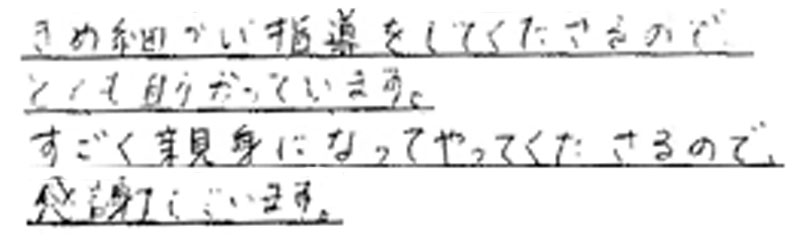 きめ細かい指導をしてくださるので、
とても助かっています。
すごく親身になってやってくださるので、
感謝しています。